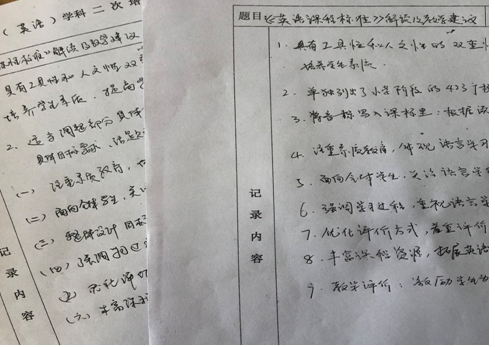 （英语）学科二次培
课程标准》解读及教学建议
具有工具性和人文性双重
培养学生素质
2. 适当调整部分具体
具体目标要求
(一) 注重素质教育，
(二) 面向全体学生，关注
(三) 整体设计目标
(四) 强调学习过
(五) 优化评价
(六) 丰富课程
记录内容
题目 《英语课程标准》解读及教学建议
1. 具有工具性和人文性的双重性
培养学生素质
2. 单独列出了小学阶段的423个
3. 将音标写入课标里：根据
4. 注重素质教育，体现语言学习
5. 面向全体学生，关注语言学
6. 强调学习过程，重视语言学
7. 优化评价方式，着重评价
8. 丰富课程资源，拓展英语
9. 教学评价：激励学生
记录内容